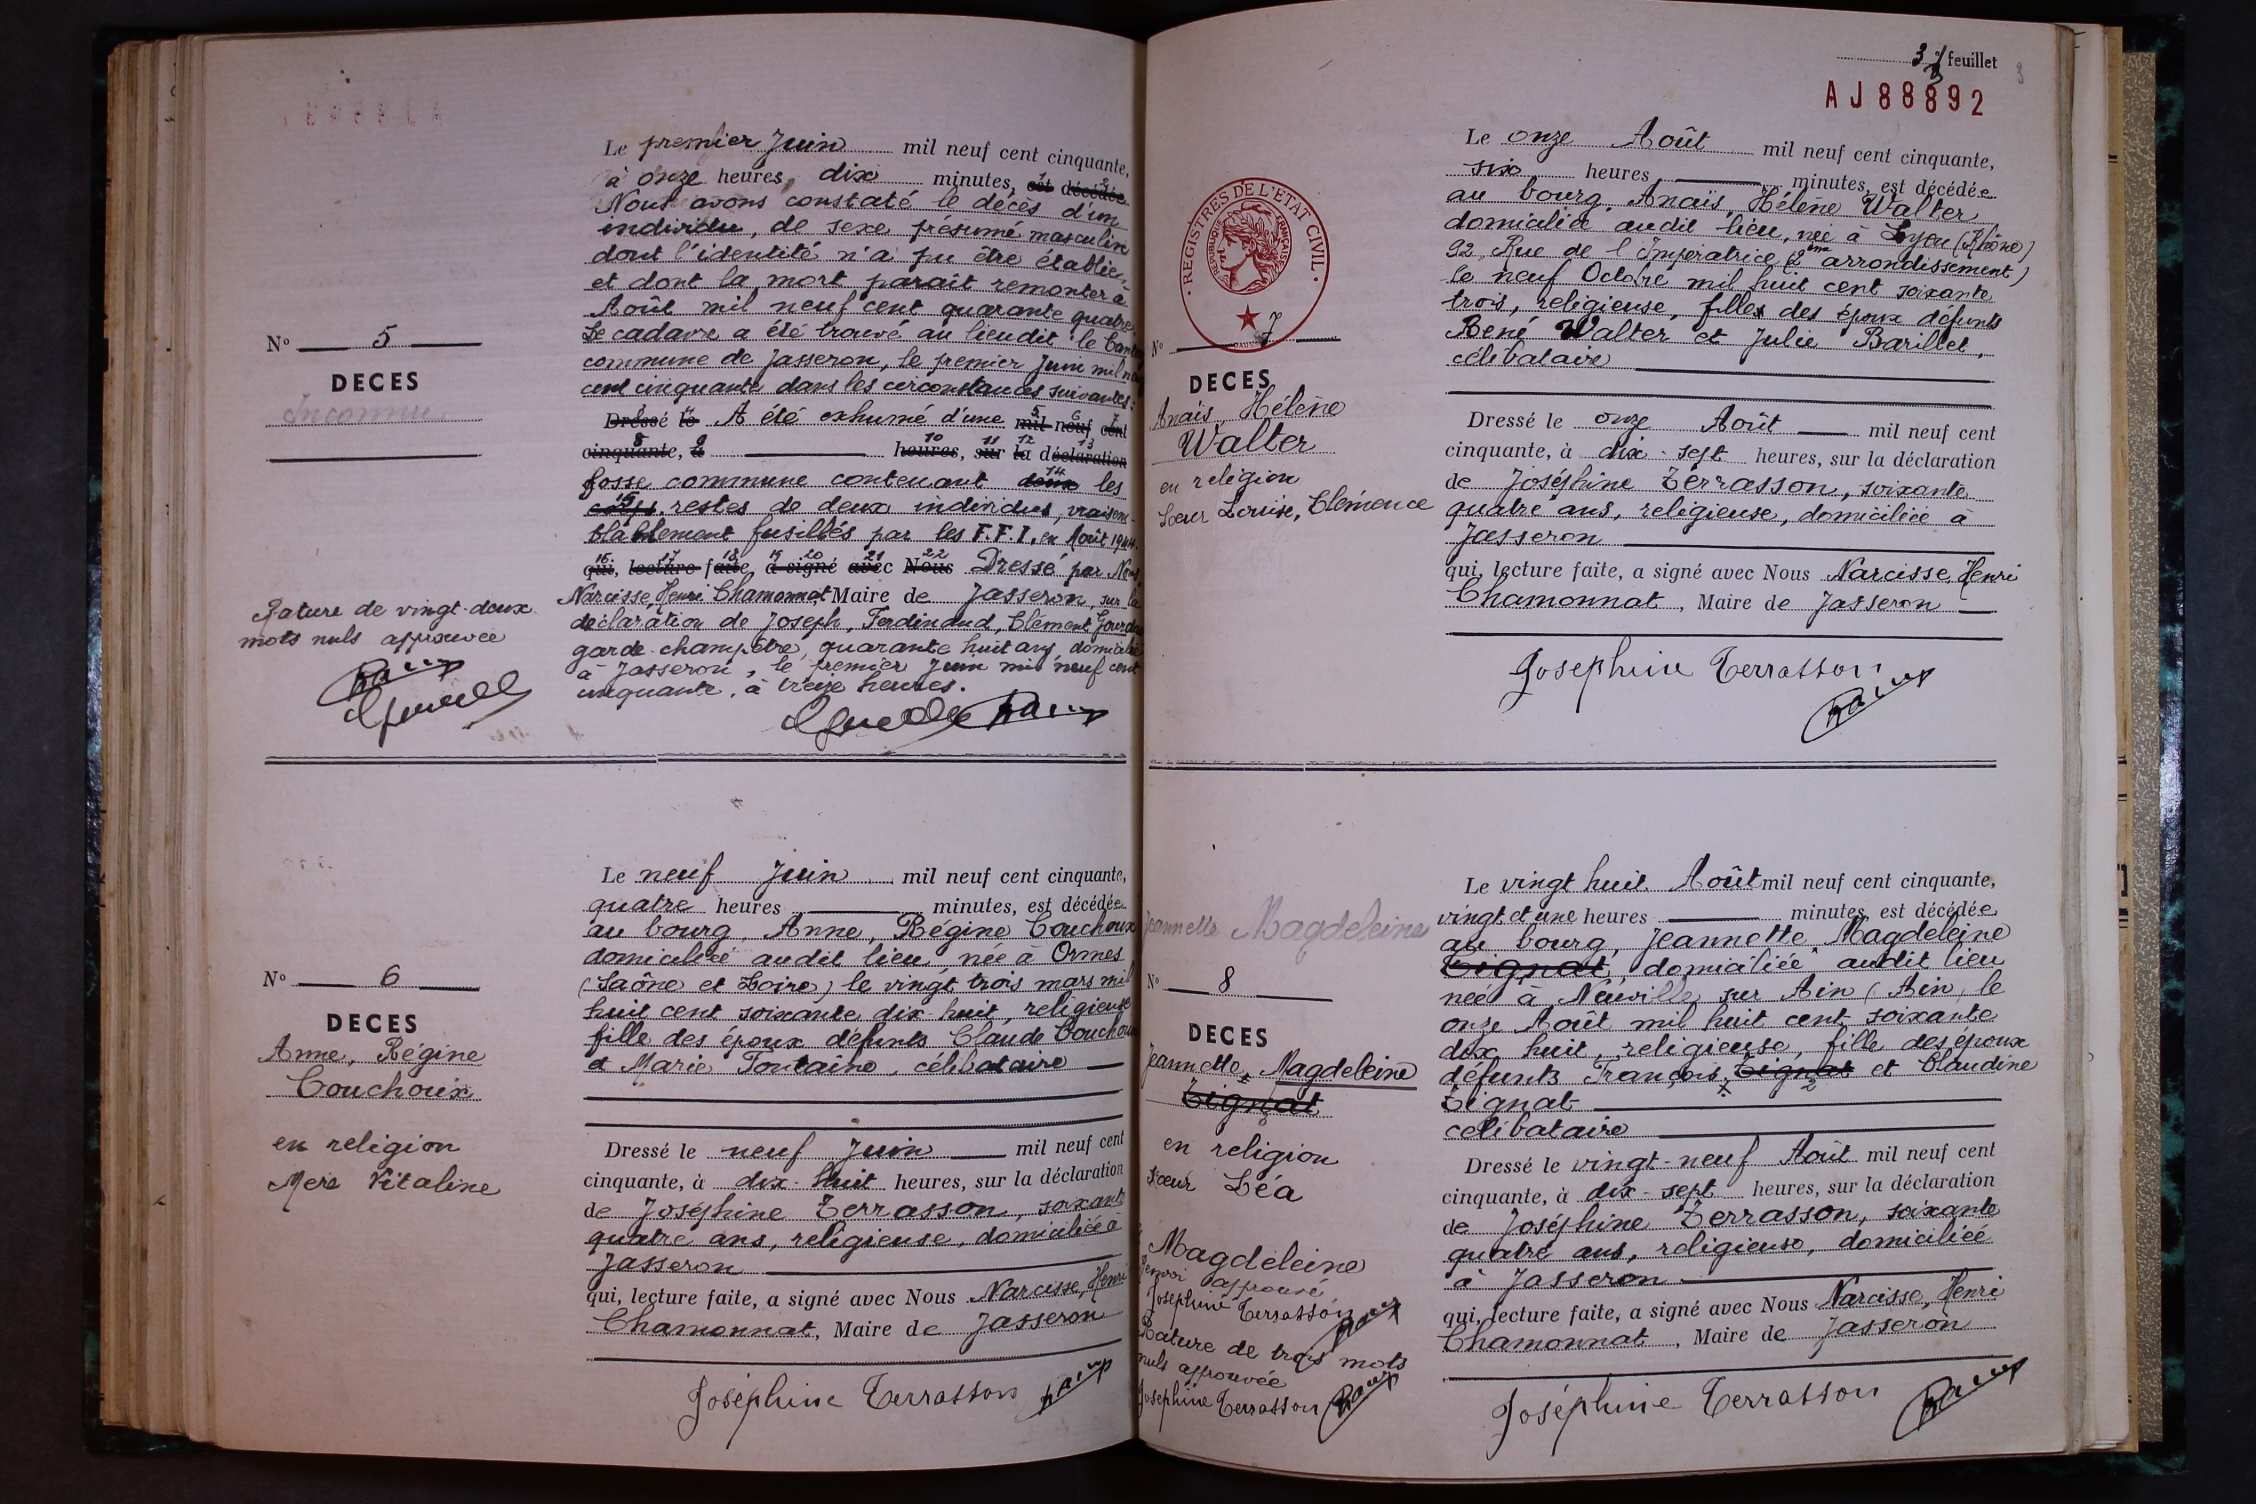 Le premier Juin mil neuf cent cinquante,
à onze heures, dix minutes, est décédée
Nous avons constaté le décès d'un
individu, de sexe présumé masculin
dont l'identité n'a pu être établie,
et dont la mort parait remonter à
Août mil neuf cent quarante quatre.
Le cadavre a été trouvé au lieudit le
commune de Jasseron, le premier Juin mil
cent cinquante dans les circonstances suivantes:
Dressé le A été exhumé d'une mil neuf cent
cinquante, à heures, sur la déclaration
fosse commune contenant deux les
corps restes de deux individus, vraisem-
blablement fusillés par les F.F.I. en Août 1944.
qui, lecture faite, a signé avec Nous Dressé par Nous
Narcisse, Henri Chamonnat Maire de Jasseron, sur la
déclaration de Joseph, Ferdinand, Clément
garde-champêtre, quarante huit ans, domicilié
à Jasseron, le premier Juin mil neuf cent
cinquante, à treize heures.
N° 5
DECES
Inconnu
Rature de vingt-deux
mots nuls approuvée
Le neuf Juin mil neuf cent cinquante,
quatre heures minutes, est décédée
au bourg, Anne, Régine Couchoux
domiciliée audit lieu, née à Ormes
(Saône et Loire) le vingt trois mars mil
huit cent soixante dix-huit, religieuse
fille des époux défunts Claude Couchoux
et Marie Fontaine, célibataire
Dressé le neuf Juin mil neuf cent
cinquante, à dix-huit heures, sur la déclaration
de Joséphine Terrasson, soixante
quatre ans, religieuse, domiciliée à
Jasseron
qui, lecture faite, a signé avec Nous Narcisse, Henri
Chamonnat, Maire de Jasseron
Joséphine Terrasson
N° 6
DECES
Anne, Régine
Couchoux
en religion
Mère Vitaline
3 feuillet
AJ88892
Le onze Août mil neuf cent cinquante,
six heures minutes, est décédée
au bourg, Anaïs, Hélène Walter
domiciliée audit lieu, née à Lyon (Rhône)
92, Rue de l'Impératrice (2ème arrondissement)
le neuf Octobre mil huit cent soixante
trois, religieuse, fille des époux défunts
René Walter et Julie Barillet,
célibataire
Dressé le onze Août mil neuf cent
cinquante, à dix-sept heures, sur la déclaration
de Joséphine Terrasson, soixante
quatre ans, religieuse, domiciliée à
Jasseron
qui, lecture faite, a signé avec Nous Narcisse, Henri
Chamonnat, Maire de Jasseron
Joséphine Terrasson
REGISTRES DE L'ETAT CIVIL
REPUBLIQUE FRANÇAISE
N° 7
DECES
Anaïs, Hélène
Walter
en religion
Soeur Louise, Clémence
Le vingt huit Août mil neuf cent cinquante,
vingt et une heures minutes, est décédée
au bourg, Jeannette, Magdeleine
Tignat, domiciliée audit lieu
née à Neuville sur Ain (Ain, le
onze Août mil huit cent soixante
dix huit, religieuse, fille des époux
défunts François Tignat et Claudine
Tignat
célibataire
Dressé le vingt-neuf Août mil neuf cent
cinquante, à dix-sept heures, sur la déclaration
de Joséphine Terrasson, soixante
quatre ans, religieuse, domiciliée
à Jasseron
qui, lecture faite, a signé avec Nous Narcisse, Henri
Chamonnat, Maire de Jasseron
Joséphine Terrasson
Jeannette Magdeleine
N° 8
DECES
Jeannette, Magdeleine
Tignat
en religion
Soeur Léa
Magdeleine
renvoi approuvé
Joséphine Terrasson
Rature de trois mots
nuls approuvée
Joséphine Terrasson